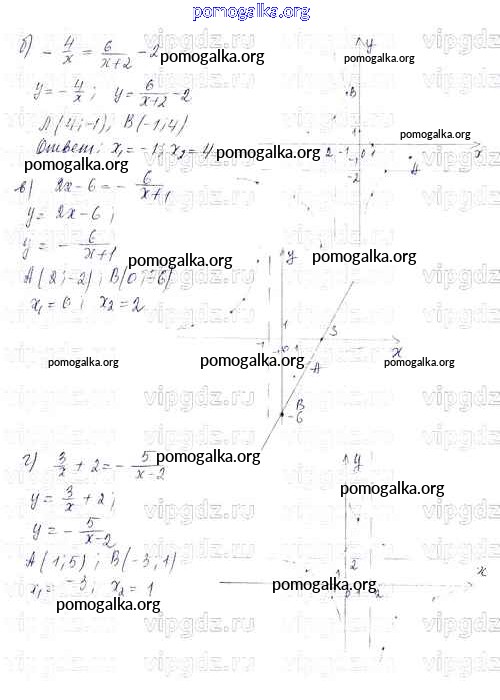 pomogalka.org
б) - 4/x = 6/(x+2) - 2
y = - 4/x ; y = 6/(x+2) - 2
A(4;-1), B(-1;4)
Ответ: x₁ = -1; x₂ = 4
в) 2x - 6 = - 6/(x+1)
y = 2x - 6 ;
y = - 6/(x+1)
A(2;-2); B(0;-6)
x₁ = 0 ; x₂ = 2
г) 3/x + 2 = - 5/(x-2)
y = 3/x + 2 ;
y = - 5/(x-2)
A(1;5) ; B(-3;1)
x₁ = -3 ; x₂ = 1
y
B
1
-1 0 1
-2
A
x
y
1
-1
0 1
3
x
A
B
-6
y
2
0 1 2
x
pomogalka.org
pomogalka.org
pomogalka.org
pomogalka.org
pomogalka.org
pomogalka.org
pomogalka.org
pomogalka.org
pomogalka.org
pomogalka.org
pomogalka.org
pomogalka.org
pomogalka.org
vipgdz.ru